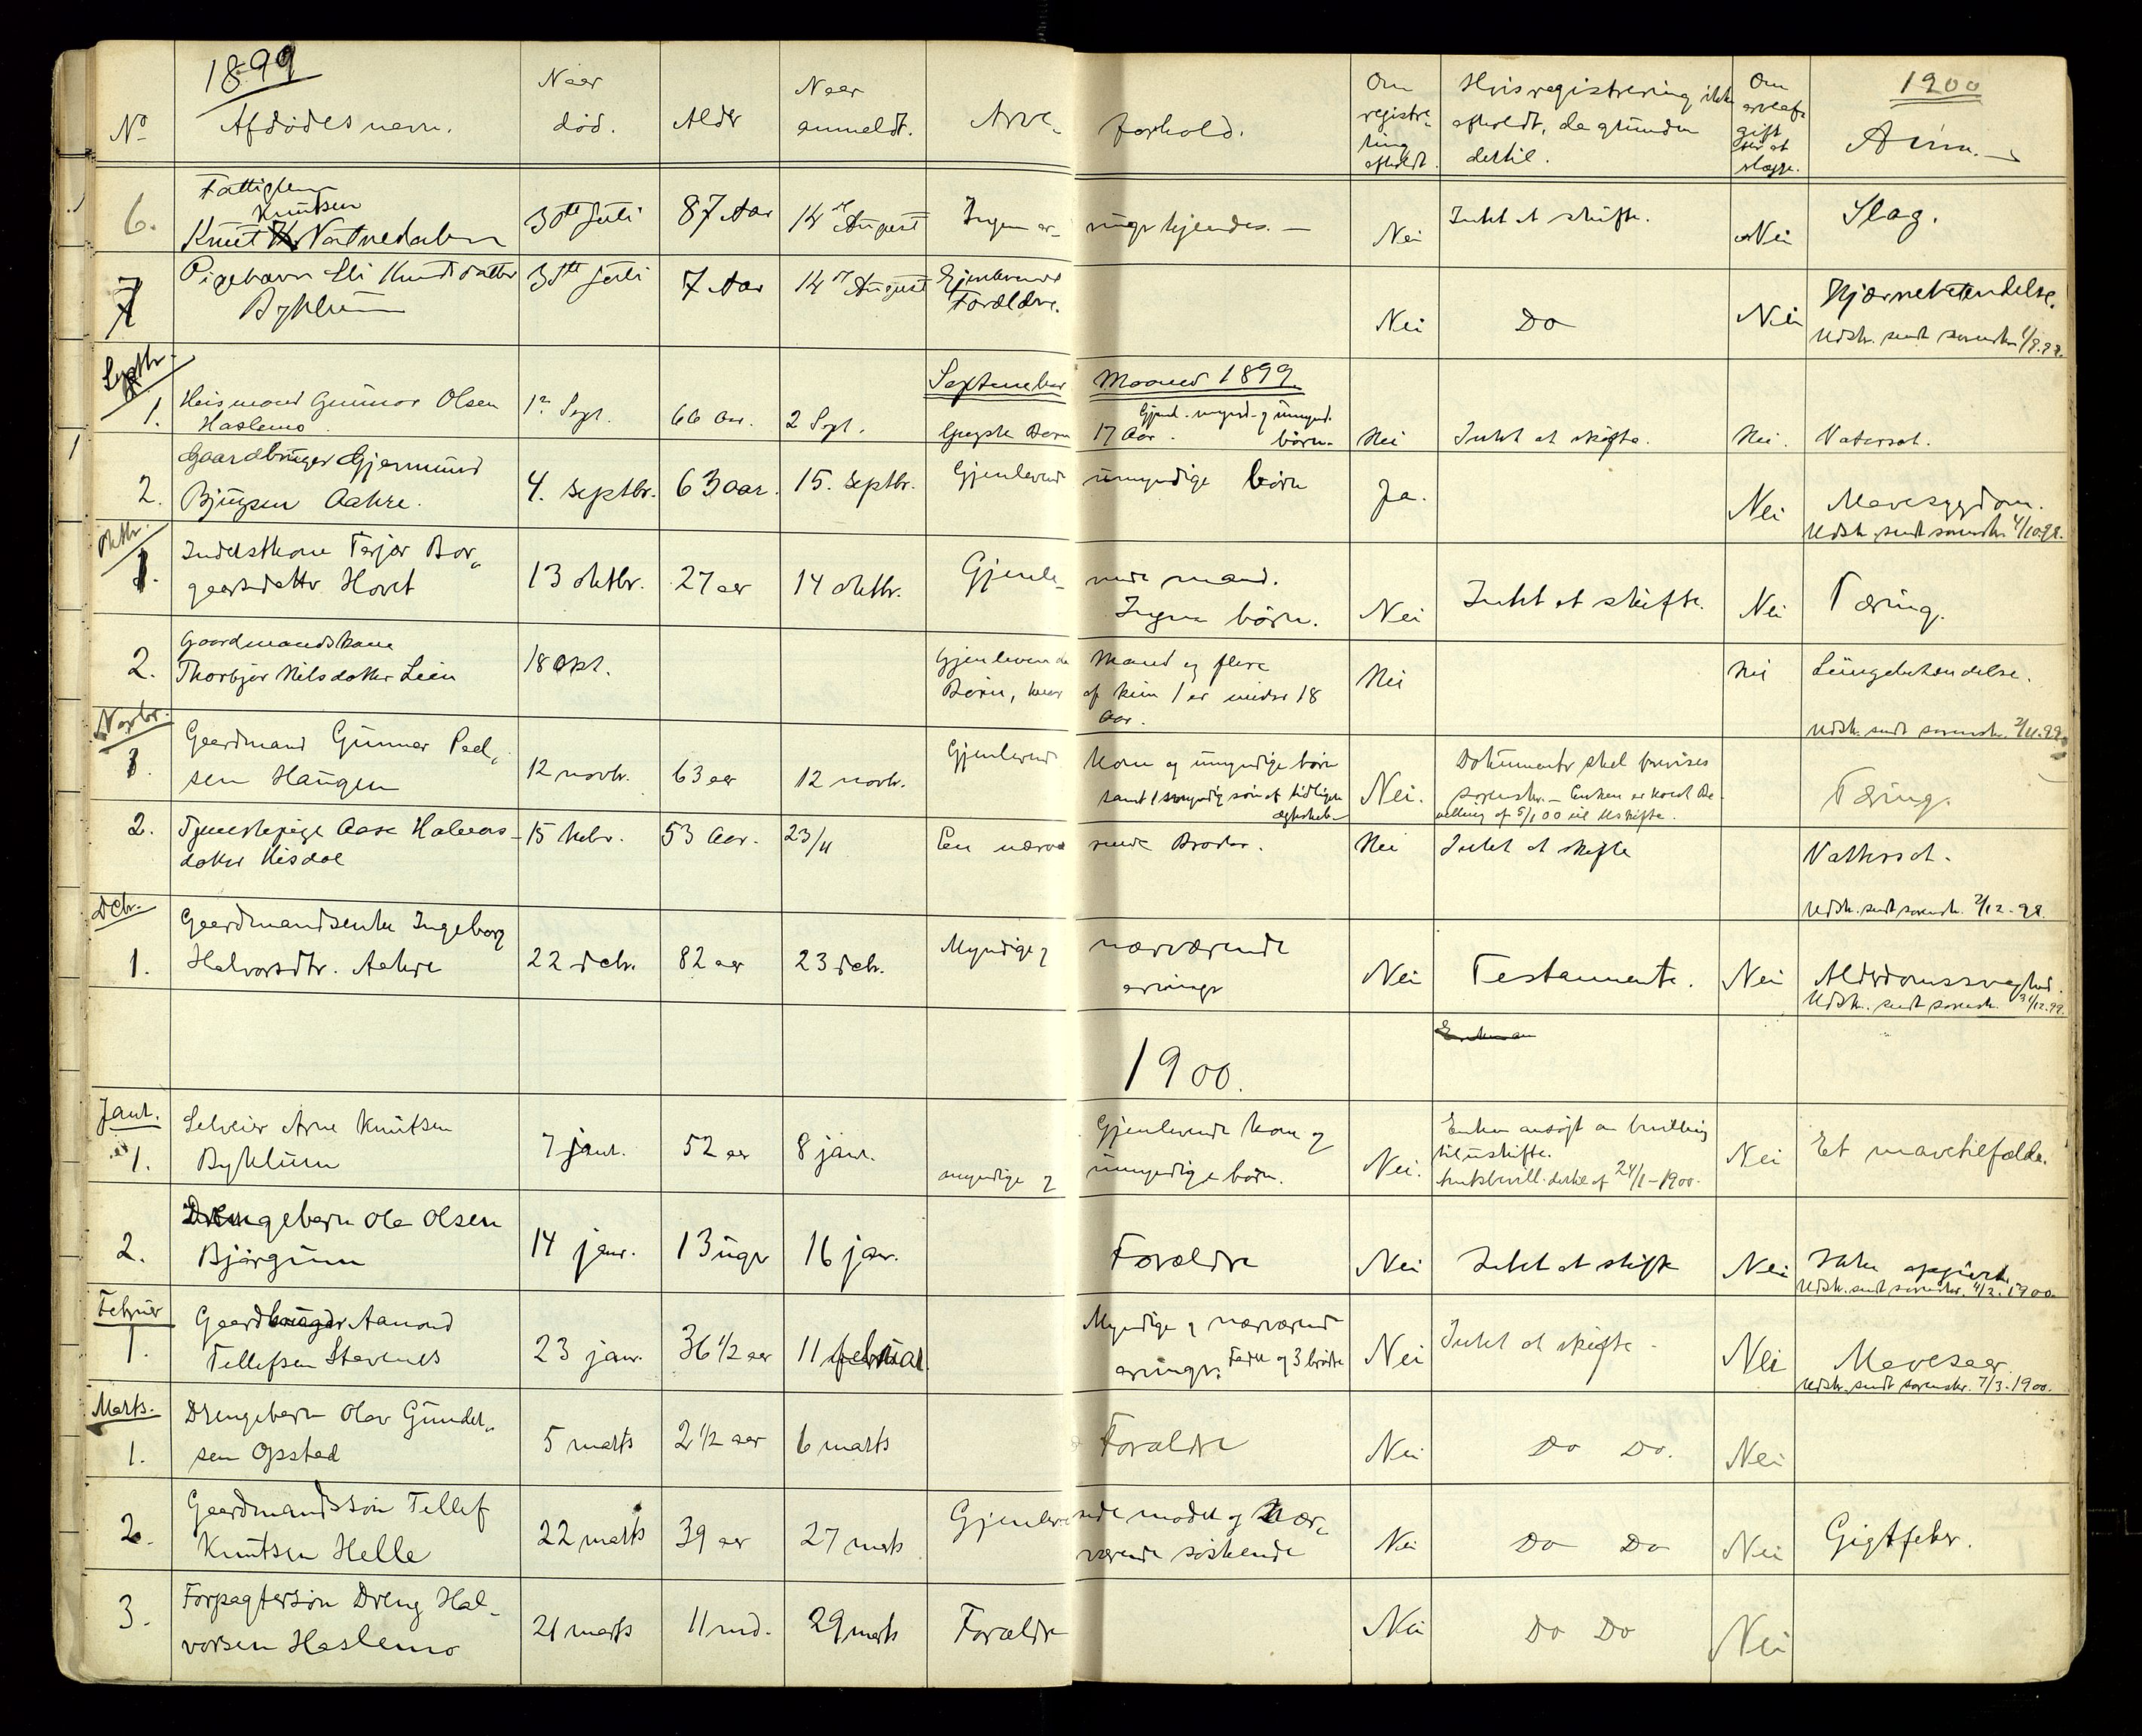 1899
No
Afdødes navn.
Naar
død.
Alder
Naar
anmeldt.
Arve-
forhold.
Om
registre-
ring
afholdt.
Hvis registrering ikke
afholdt, da grunden
dertil.
Om
arveaf-
gift
er at
1900
Anm.
6.
Fattiglem
Knutsen
Knut Vatnedalen
30te Juli
87 Aar
14de August
Ingen ar-
vinger kjendes. —
Nei
Intet at skifte.
Nei
Slag.
7
Pigebarn Sli Knudsdatter
Byklum
7 Aar
14de August
Gjenlevende
Forældre.
Nei
Do
Nei
Hjernebetændelse.
Udskr. sendt sorenskr.
Septbr.
September Maaned 1899.
1.
Husmand Gunnar Olsen
Haslemo
1te Sept.
66 Aar.
2 Sept.
17 Aar. børn.
Nei
Intet at skifte.
Nei.
Vatersot.
2.
Gaardbruger Gjermund
Aakre.
4. septbr.
63 aar.
15. septbr.
Gjenlevende umyndige børn
Ja.
Nei
Mavesygdom.
Udskr. sendt sorenskr. 4/10.99.
Oktbr.
1.
Inderstkone Terjer Bor-
geersdatter Hovet
13 oktbr.
27 aar
14 oktbr.
Gjenle-
vende mand.
Ingen børn.
Nei
Intet at skifte.
Nei
Tæring.
2.
Gaardmandskone
Thorbjør Nilsdotter Lien
18 Okt.
Gjenlevende Mand og flere
Børn, hvor af kun 1 er under 18
Aar.
Nei
Nei
Lungebetændelse.
Udskr. sendt sorenskr. 2/11.99.
Novbr.
1.
Gaardmand Gunnar Paul-
sen Haugen
12 novbr.
63 aar
12 novbr.
Gjenlevende kone og umyndige børn
samt 1 myndig søn af tidligere
ægteskab
Nei.
Dokumenter skal forevises
sorenskr. — Enken er konst. Be-
villing af 5/1 00 til Uskifte.
Tæring.
2.
Tjenestepige Aase Halvors-
datter Nisdal
15 Nvbr.
53 Aar.
23/11
En nærvæ
rende Broder.
Nei
Intet at skifte
Vattersot.
Udskr. sendt sorenskr. 2/12.99.
Dcbr.
1.
Gaardmandsenke Ingeborg
Halvorsdtr. Aakre
22 dcbr.
82 aar
23 dcbr.
Myndige og nærværende
arvinger
Nei
Testamente.
Nei
Alderdomssvaghed.
Udskr. sendt sorenskr. 31/12.99.
1900.
Janr.
1.
Selveier Arne Knutsen
Byklum
7 janr.
52 aar
8 janr.
Gjenlevende kone og
myndige og umyndige børn.
Nei.
Enken ansøgt om bevilling
til uskifte.
Amtsbevill. dertil af 24/1-1900.
Nei
Et mavetilfælde.
2.
Drengebarn Ola Olsen
Bjørgum
14 janr.
13 uger
16 janr.
Forældre
Nei
Intet at skifte
Nei
Ikke opgivet.
Udskr. sendt sorenskr. 4/2. 1900.
Februar
1.
Gaardbruger Aanond
Tellefsen Stavenes
23 janr.
36 1/2 aar
11 februar.
Myndige og nærværende
arvinger. Fader og 3 brødre
Nei
Intet at skifte.
Nei
Mavesaar.
Udskr. sendt sorenskr. 7/3.1900.
Marts.
1.
Drengebarn Olav Gunder-
sen Opstad
5 marts
2 1/2 aar
6 marts
Forældre
Nei
Do Do.
Nei
2.
Gaardmandssøn Tellef
Knutsen Helle
22 marts
39 aar
27 marts
Gjenlevende moder og nær-
værende søskende
Nei
Do Do
Nei
Gigtfeber.
3.
Forpagtersøn Dreng Hal-
vorsen Haslemo
21 marts
11 md.
29 marts
Forældre
Nei
Do Do
Nei